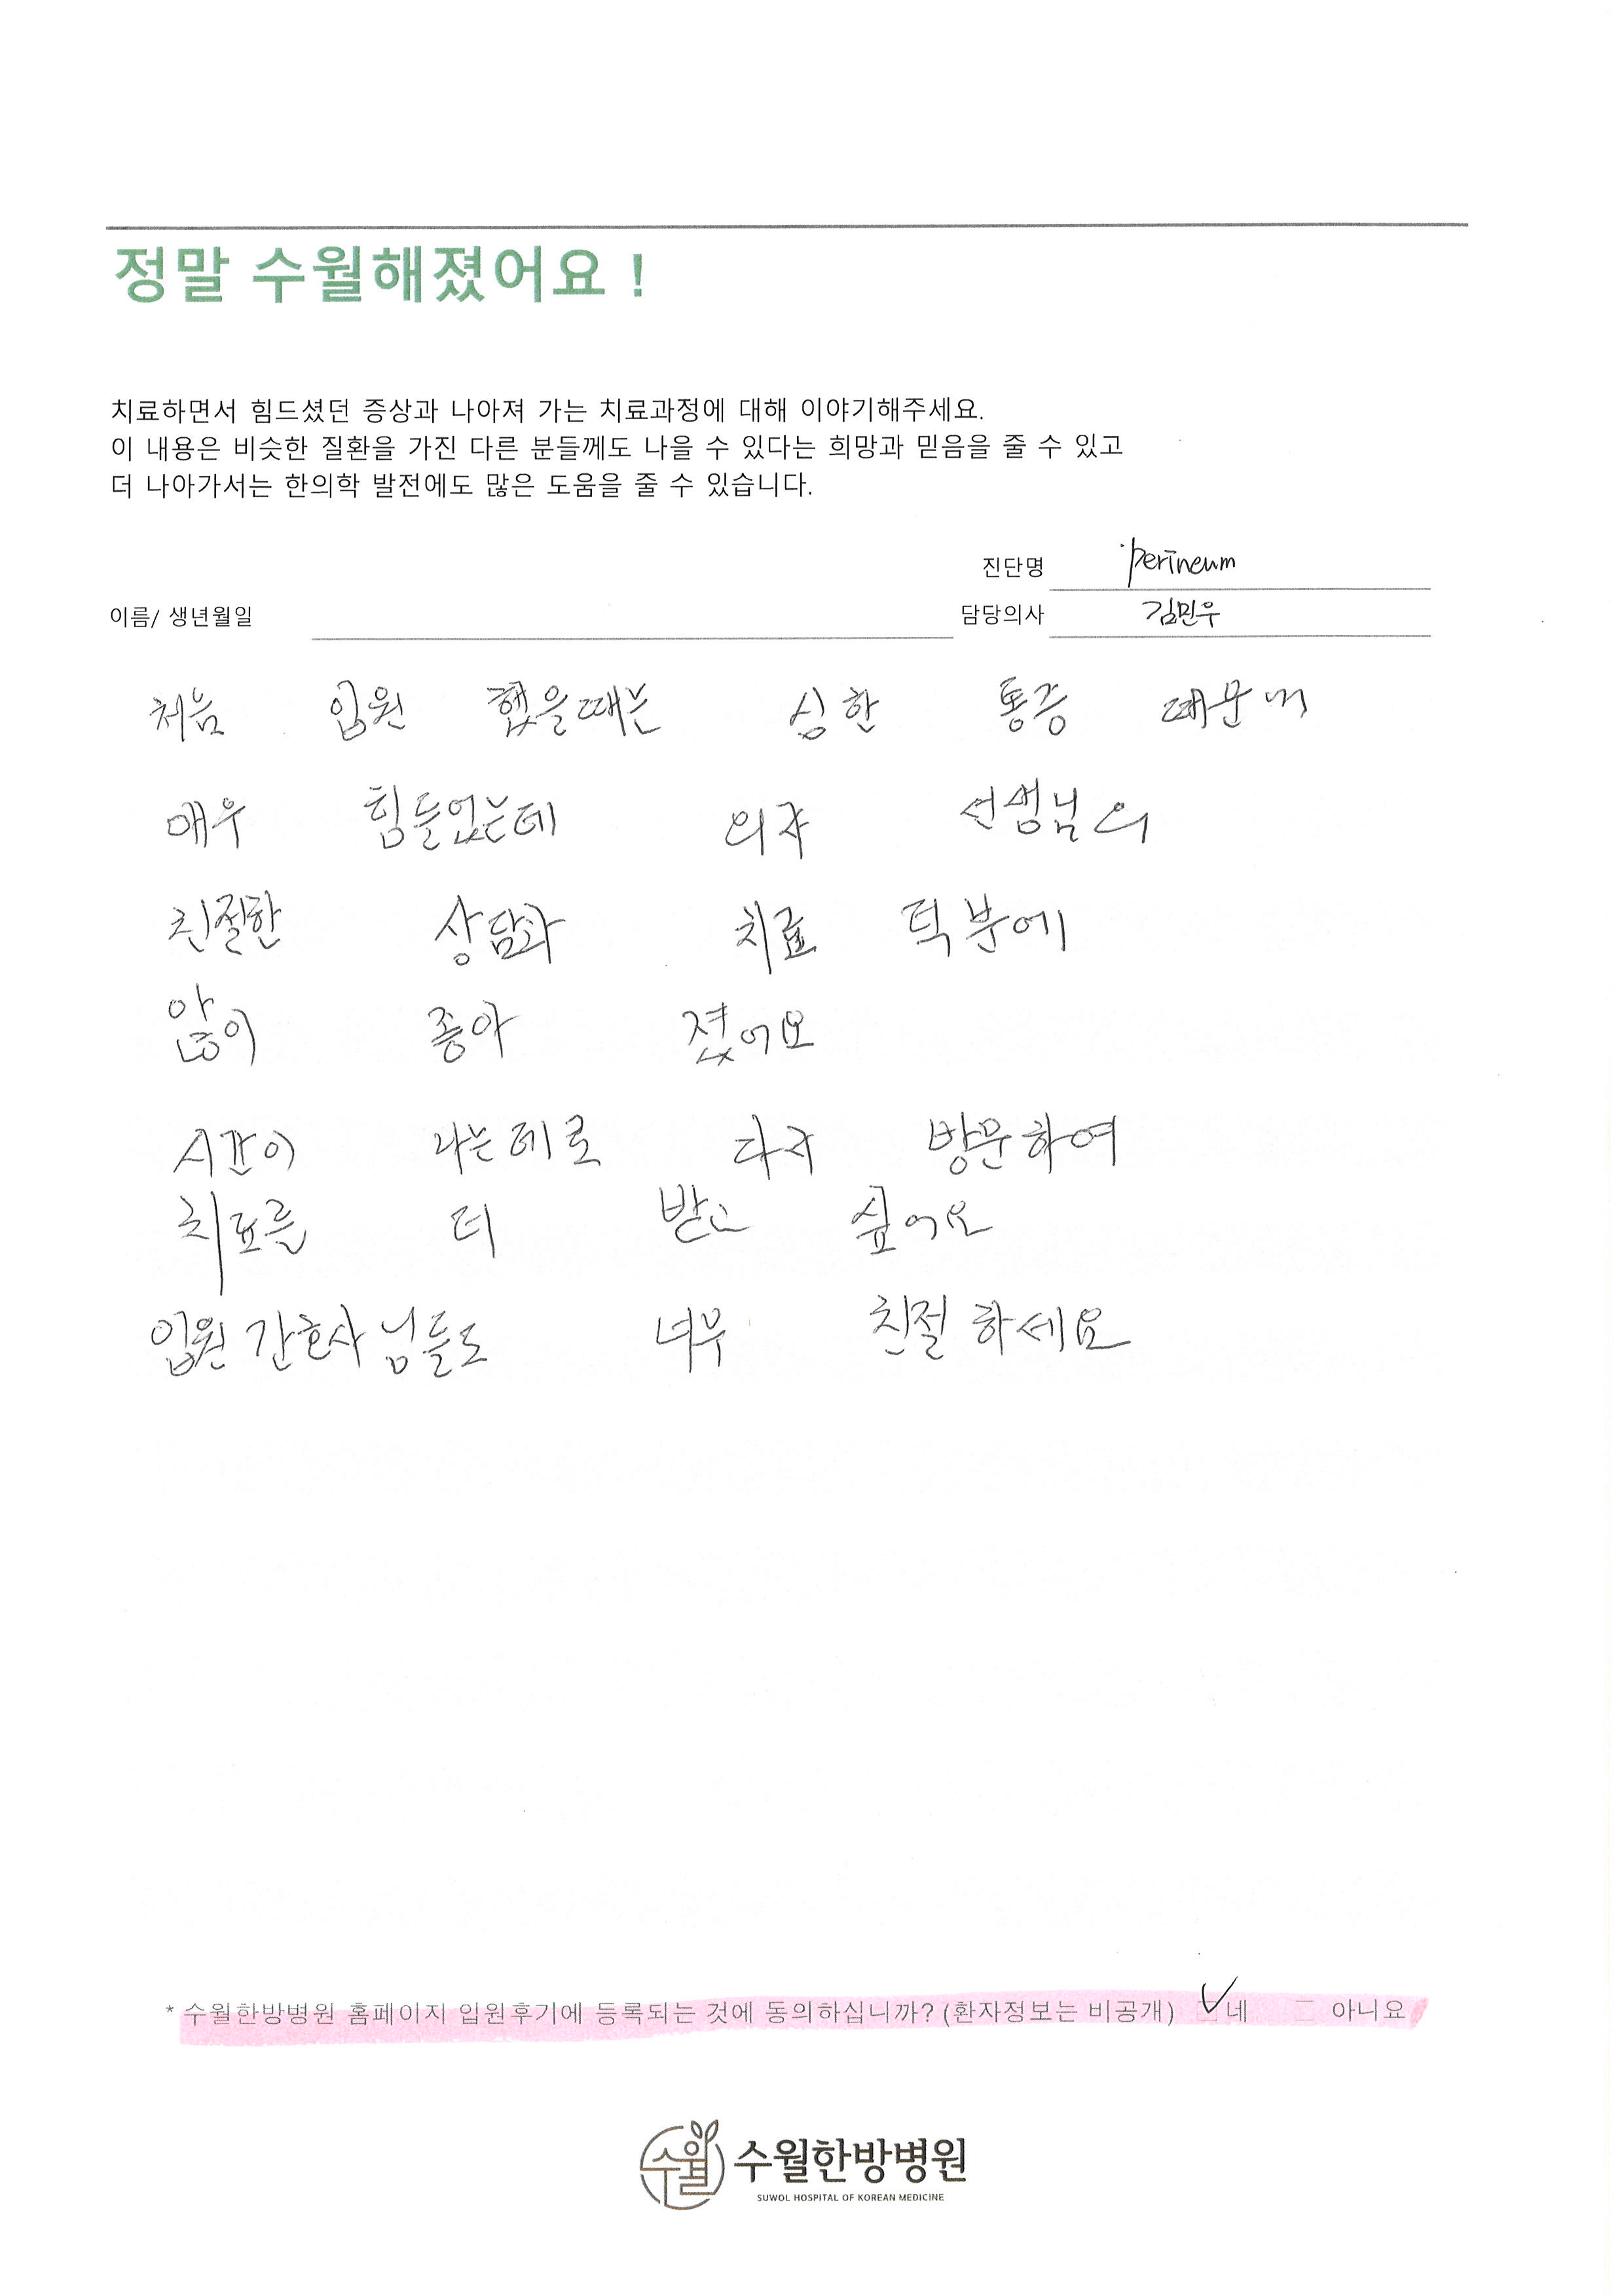 정말 수월해졌어요 !
치료하면서 힘드셨던 증상과 나아져 가는 치료과정에 대해 이야기해주세요.
이 내용은 비슷한 질환을 가진 다른 분들께도 나을 수 있다는 희망과 믿음을 줄 수 있고
더 나아가서는 한의학 발전에도 많은 도움을 줄 수 있습니다.
진단명 perineum
이름/ 생년월일 담당의사 김민우
처음 입원 했을때는 심한 통증 때문에
매우 힘들었는데 의자 선생님의
친절한 상담과 치료 덕분에
많이 좋아 졌어요
시간이 나는데로 다시 방문하여
치료를 더 받고 싶어요
입원 간호사 님들도 너무 친절 하세요
* 수월한방병원 홈페이지 입원후기에 등록되는 것에 동의하십니까? (환자정보는 비공개) ☑ 네 □ 아니요
수월 수월한방병원
SUWOL HOSPITAL OF KOREAN MEDICINE